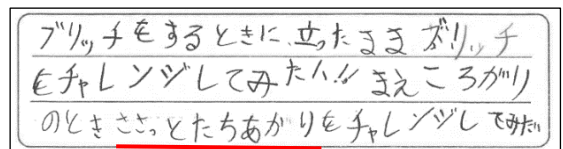 ブリッチをするときに、立ったままブリッチ
をチャレンジしてみたい!! まえころがり
のときささっとたちあがりをチャレンジしてみたい